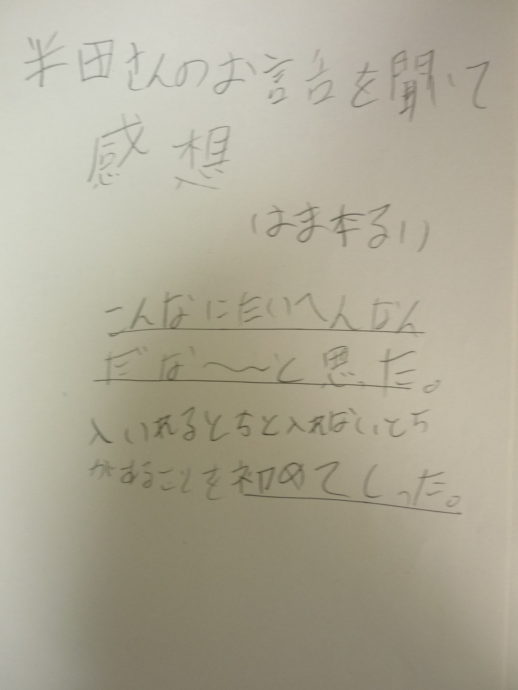 半田さんのお話を聞いて
感想
はま本るい
こんなにたいへんなん
だな〜〜と思った。
入いれるとちと入れないとち
があることを初めてしった。